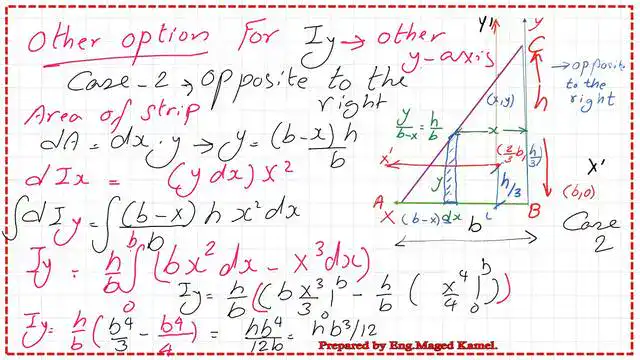 Other option For Iy → other
y-axis
Case-2 → opposite to the
right
Area of strip
dA = dx · y → y = (b-x) h / b
dIx = (y dx) x²
∫dIy = ∫ (b-x) h x² dx / b
Iy = h/b ∫₀ᵇ (bx² dx - x³ dx)
Iy = h/b ((b x³/3 |₀ᵇ - h/b (x⁴/4 |₀ᵇ))
Iy = h/b (b⁴/3 - b⁴/4) = hb⁴/12b = hb³/12
y'
y
C
→ opposite
to the
right
h
(x,y)
y/(b-x) = h/b
x
(2/3 b, h/3)
x'
y
h/3
x'
(b,0)
A
B
X
(b-x)
dx
b
Case
2
Prepared by Eng.Maged Kamel.